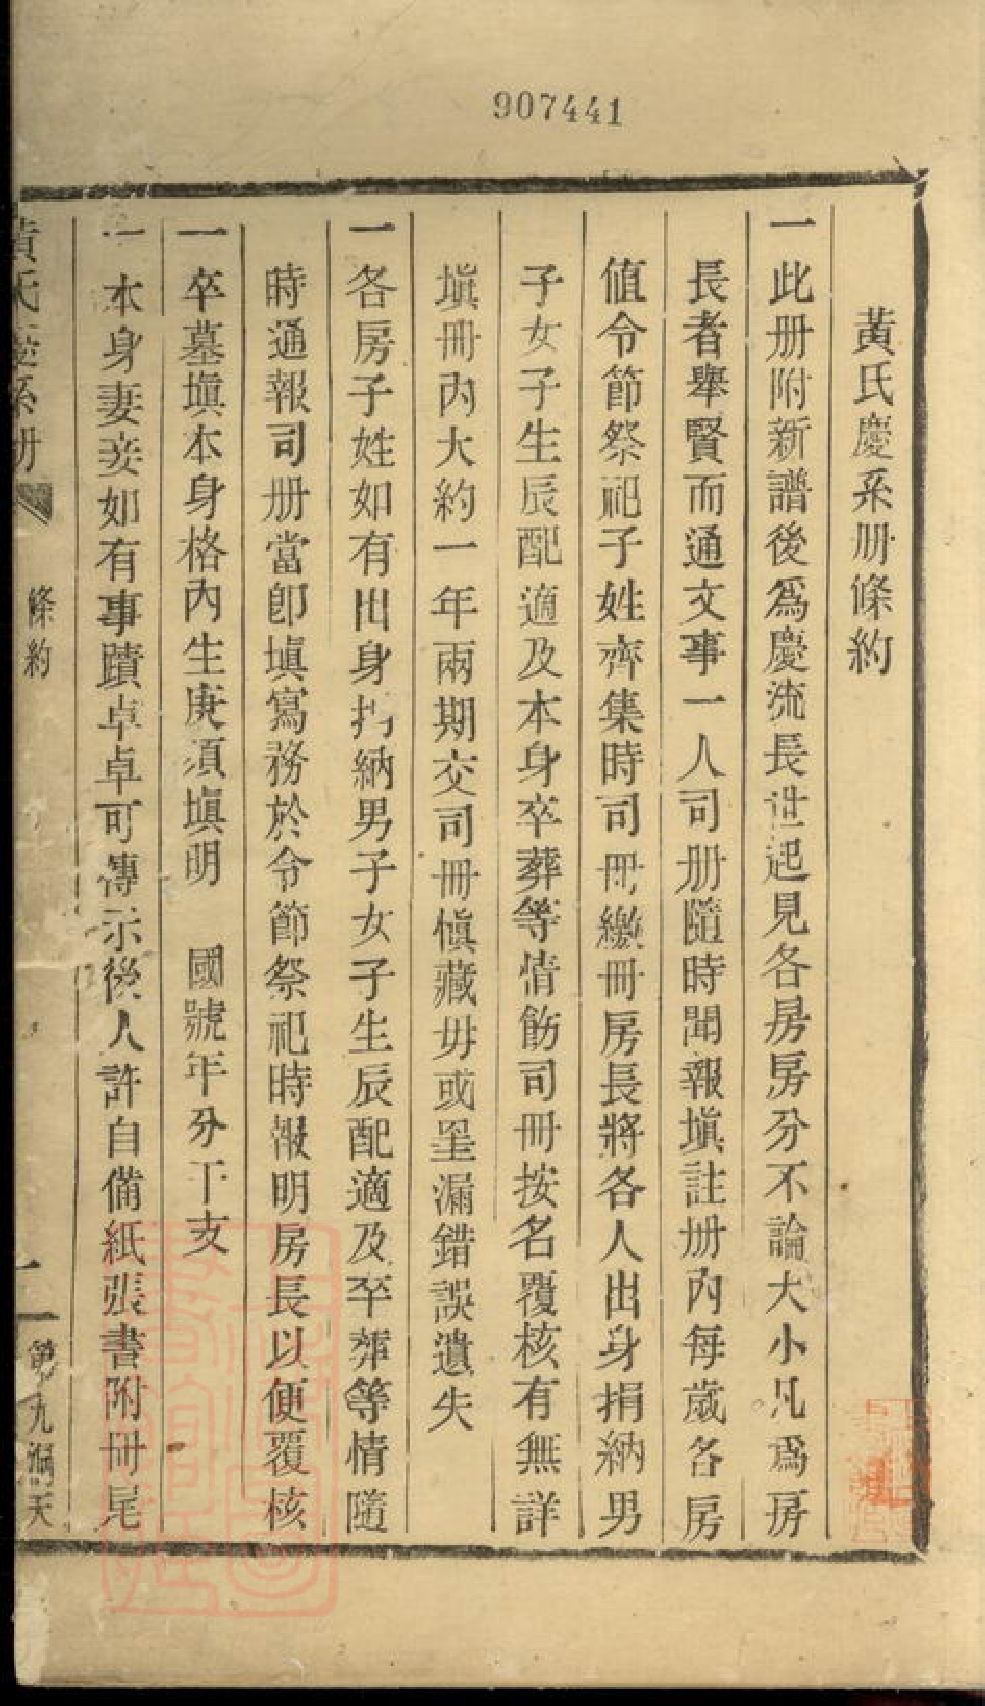 907441
黃氏慶系册條約
一此册附新譜後爲慶流長世起見各房房分不論大小凡爲房
長者舉賢而通文事一人司册隨時聞報塡註册內每歲各房
值令節祭祀子姓齊集時司冊繳冊房長將各人出身捐納男
子女子生辰配適及本身卒葬等情飭司冊按名覆核有無詳
塡冊內大約一年兩期交司冊愼藏毋或罣漏錯誤遺失
一各房子姓如有出身捐納男子女子生辰配適及卒葬等情隨
時通報司册當卽塡寫務於令節祭祀時報明房長以便覆核
一卒墓塡本身格內生庚須塡明　國號年分干支
一本身妻妾如有事蹟卓卓可傳示後人許自備紙張書附冊尾
黃氏慶系册
條約
一
第九洞天